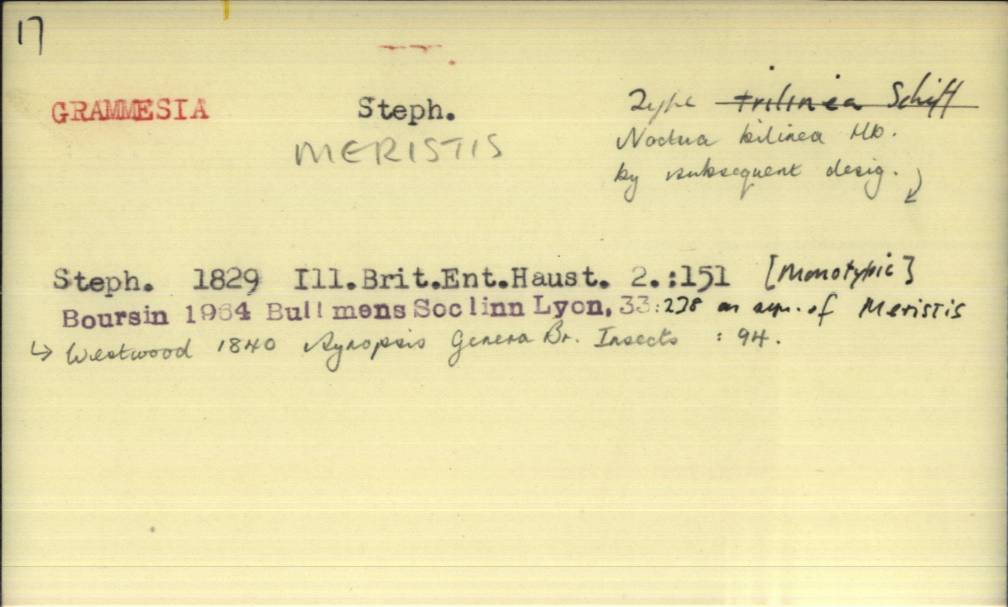 17
GRAMMESIA Steph. Type trilinea Schiff
MERISTIS
Noctua bilinea Hb.
by subsequent desig.
Steph. 1829 Ill.Brit.Ent.Haust. 2.:151 [Monotypic]
Boursin 1964 Bull mens Soc linn Lyon, 33:238 as syn. of Meristis
↳ Westwood 1840 Synopsis Genera Br. Insects : 94.